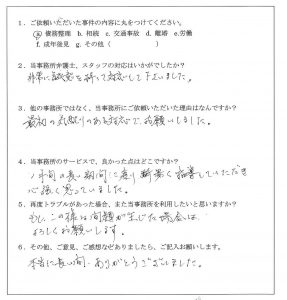 1．ご依頼いただいた事件の内容に丸をつけてください。
ⓐ 債務整理 b. 相続 c. 交通事故 d. 離婚 e.労働
f. 成年後見 g. その他（　　　　）
2．当事務所弁護士、スタッフの対応はいかがでしたか？
非常に誠意を持って対応して下さいました。
3．他の事務所ではなく、当事務所にご依頼いただいた理由はなんですか？
最初の気配りのある対応で、お願いしました。
4．当事務所のサービスで、良かった点はどこですか？
長い期間に渡り
心強く思っていました。
5．再度トラブルがあった場合、また当事務所を利用したいと思いますか？
もし、この様な問題が生じた場合は、
よろしくお願いします。
6．その他、ご意見、ご感想などありましたら、ご記入お願いします。
本当に長い間、ありがとうございました。